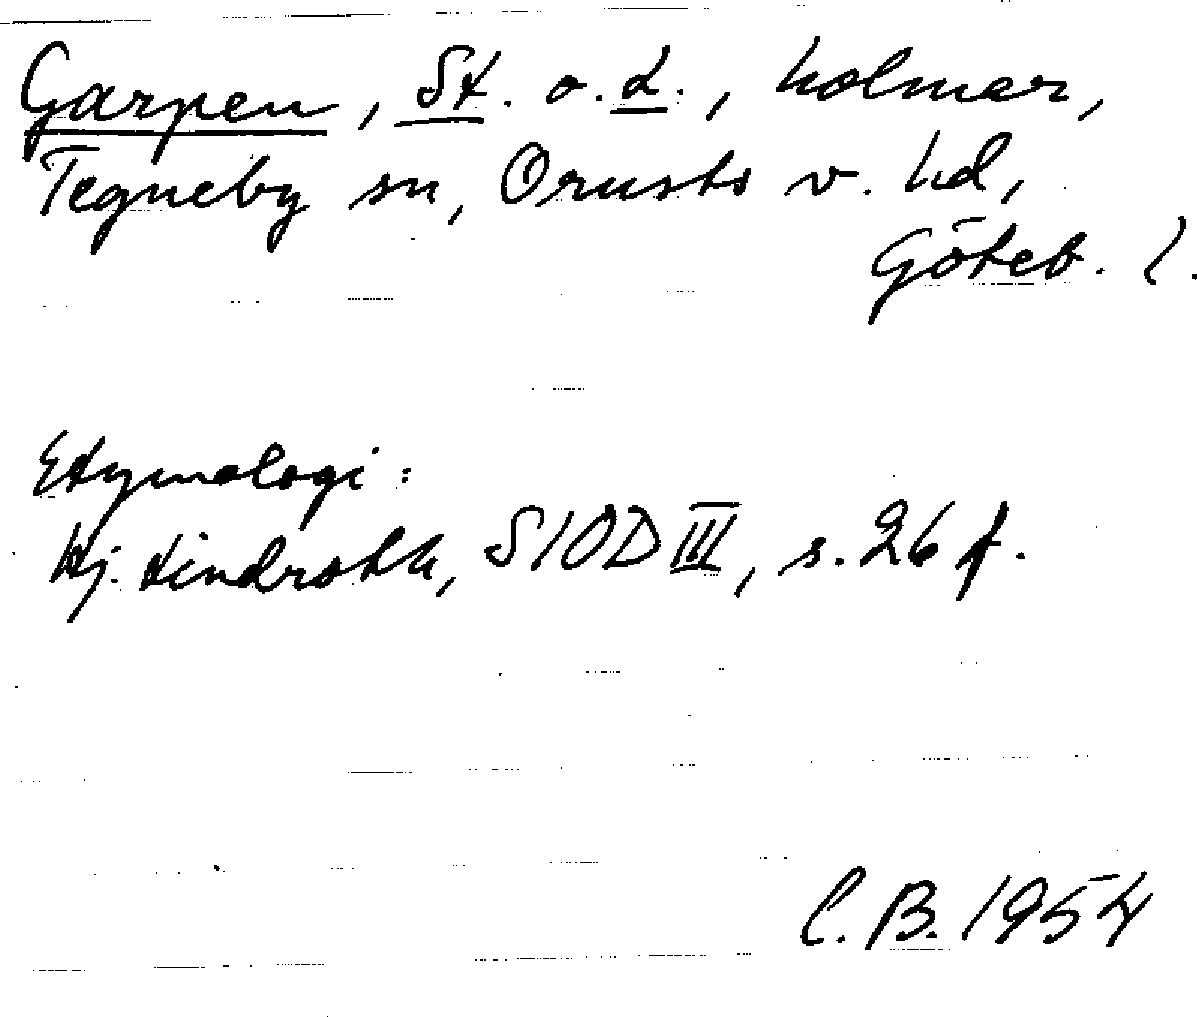 Garpen, St. o. L., holmar,
Tegneby sn, Orusts v. hd,
Göteb. l.
Etymologi:
Hj. Lindroth, SIOD III, s. 26 f.
C. B. 1954